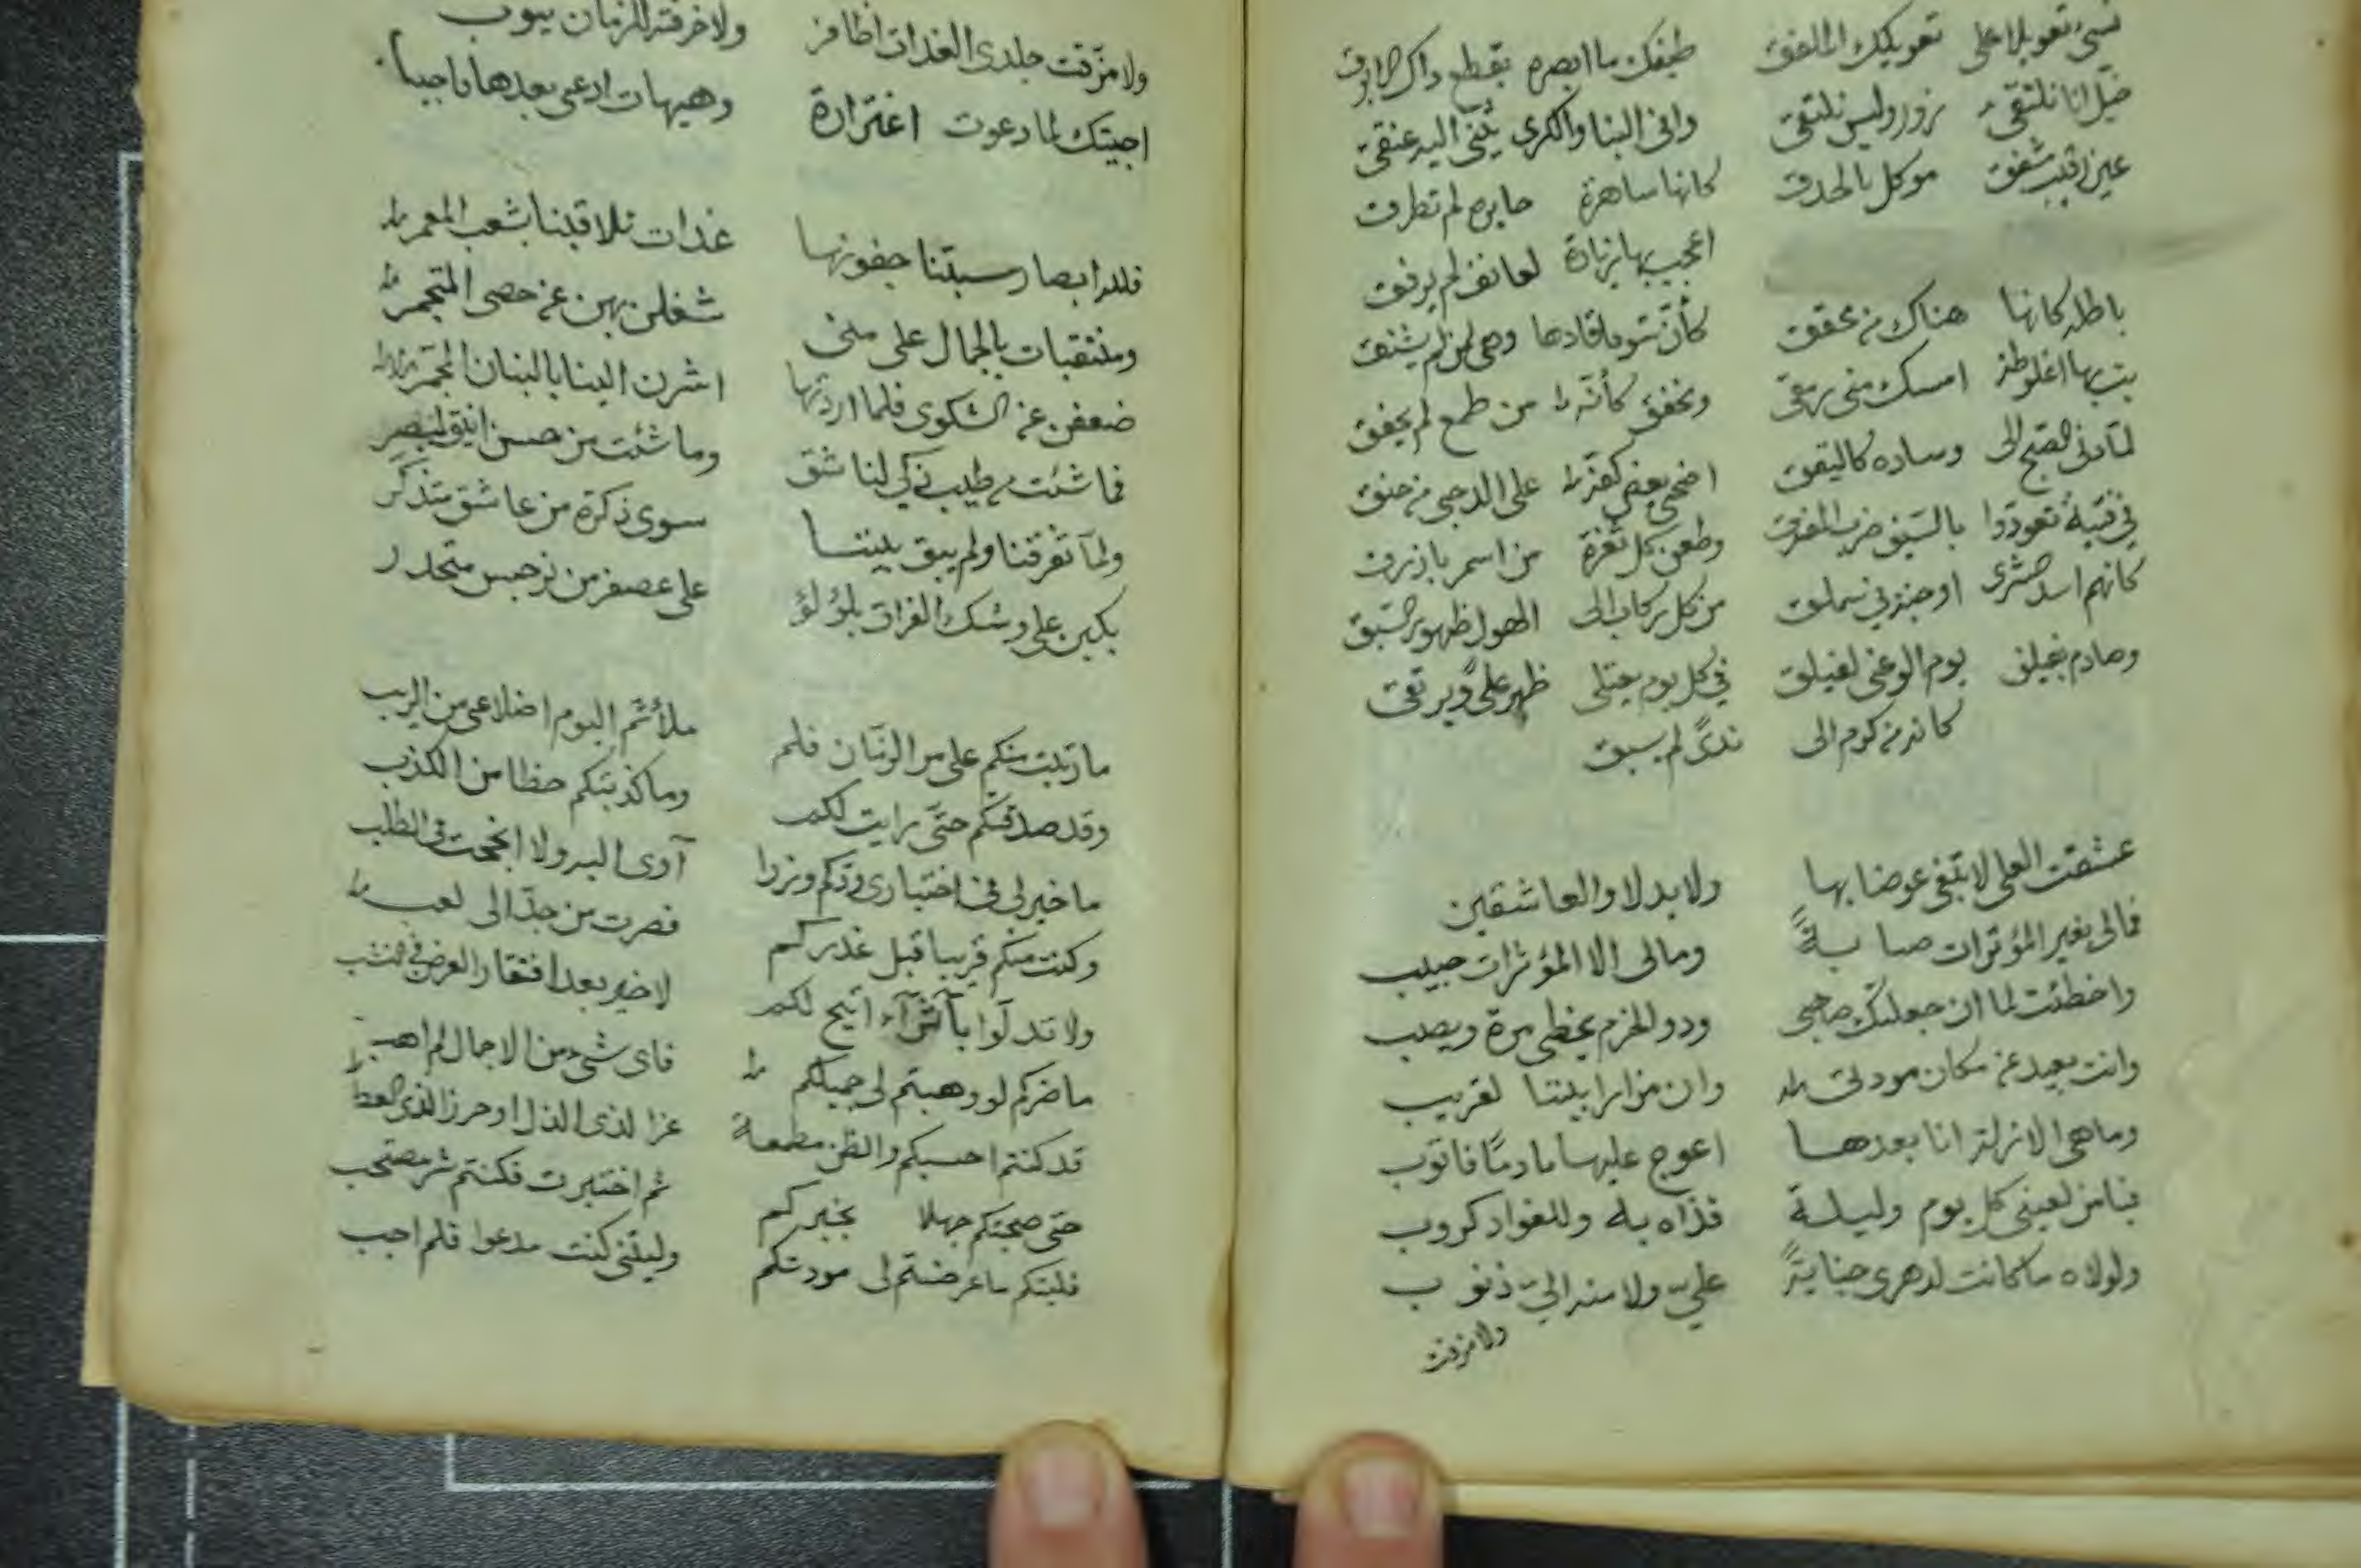 نسى تعويلا على تعويكك الملفق طيفك ما ابصره بقطع ذاك الابرق
خيل انا نلتقى نزور وليس نلتقى وافى الينا والكرى يثنى اليه عنقى
عين رقيب مشفق موكل بالحدق كانها ساهرة حايره لم تطرق
اعجب بها زيارة لعاتق لم يرفق
باطلة كانها هناك من تحقق كأن شوقا قادها وهى لمن لم يشتق
بت بها اغلوطة امسك منى رمقى وتخفق كأنه من طمع لم يخفق
لما دنى الصبح الى وساده كاليقق اضحى بعض كفه على الدجى من حنق
فى فتية تعودوا بالسيف ضرب المفرق وطعن كل ثغرة من اسمر بازرق
كانهم اسد الشرى او جنة فى سملق من كل ركاب الى الهول ظهور السبق
وصادم بفيلق يوم الوغى لفيلق فى كل يوم يعتلى ظهر على ويرتقى
كانه من كرم الى ندى لم يسبق
عشقت العلى لا تبتغى عوضا بها ولا بدلا والعاشقين
فمالى بغير المؤثرات صبابة ومالى الا المؤثرات حبيب
واخطئت لما ان جعلتك صاحبى وذو الحزم يخطى مرة ويصيب
وانت بعيد عن مكان مودتى وان مزارا بيننا لقريب
وما هى الا زلة انا بعدها اعوج عليها مادما فاتوب
فيا من لعينى كل يوم وليلة قذاه به وللفواد كروب
ولولاه ما كانت لدهرى جناية على ولا منه الى ذنوب
ولا مزقت
ولا مزقت جلدى الغداة اظافر ولا خرقته للزمان نيوب
اجبتك لما دعوت اغترارة وهيهات ادعى بعدها فاجيبا
فلله ابصار سبتنا جفونها غداة تلاقينا بشعب المعمر
ومنتقبات بالجمال على منى شغلن بهن عن حصى المتجمر
ضعفن عن الشكوى فلما اردنها اشرن الينا بالبنان المجمر
فما شئت من طيب ذكى لناشق وما شئت من حسن انيق لمبصر
ولما تفرقنا ولم يبق بيننا سوى ذكرة من عاشق متذكر
بكين على وشك الفراق بلؤلؤ على عصفر من نرجس متحدر
ما رتبت منكم على مر الزمان فلم ملأتم اليوم اضلاعى من الريب
وقد صدقتكم حتى رايت لكم وما كذبتكم حظا من الكذب
ما خير لى فى اختيارى ودكم وزرا آوى اليه ولا انجحت فى الطلب
وكنت منكم قريبا قبل غدركم فصرت من جد الى لعب
ولا تدلوا بآثراء اتيح لكم لا خير بعد افتقار العرض فى النشب
ما ضركم لو وهبتم لى جميلكم فاى شىء من الاجمال لم اهب
قد كنتم احسبكم والظن مطمعة عزا لذى الذل او حرزا لذى العطب
حتى صحبتكم جهلا بخبركم ثم اختبرت فكنتم شر مصتحب
فليتكم ما عرضتم لى مودتكم وليتنى كنت مدعوا فلم اجب